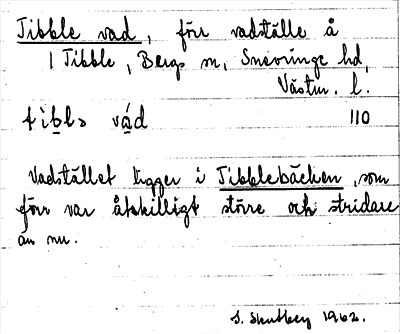 Tibble vad, förr vadställe å
1 Tibble, Bergs sn, Snevringe hd,
Västm. l.
tibls vád 110
Vadstället ligger i Tibblebäcken, som
förr var åtskilligt större och stridare
än nu.
S. Skutberg 1962.